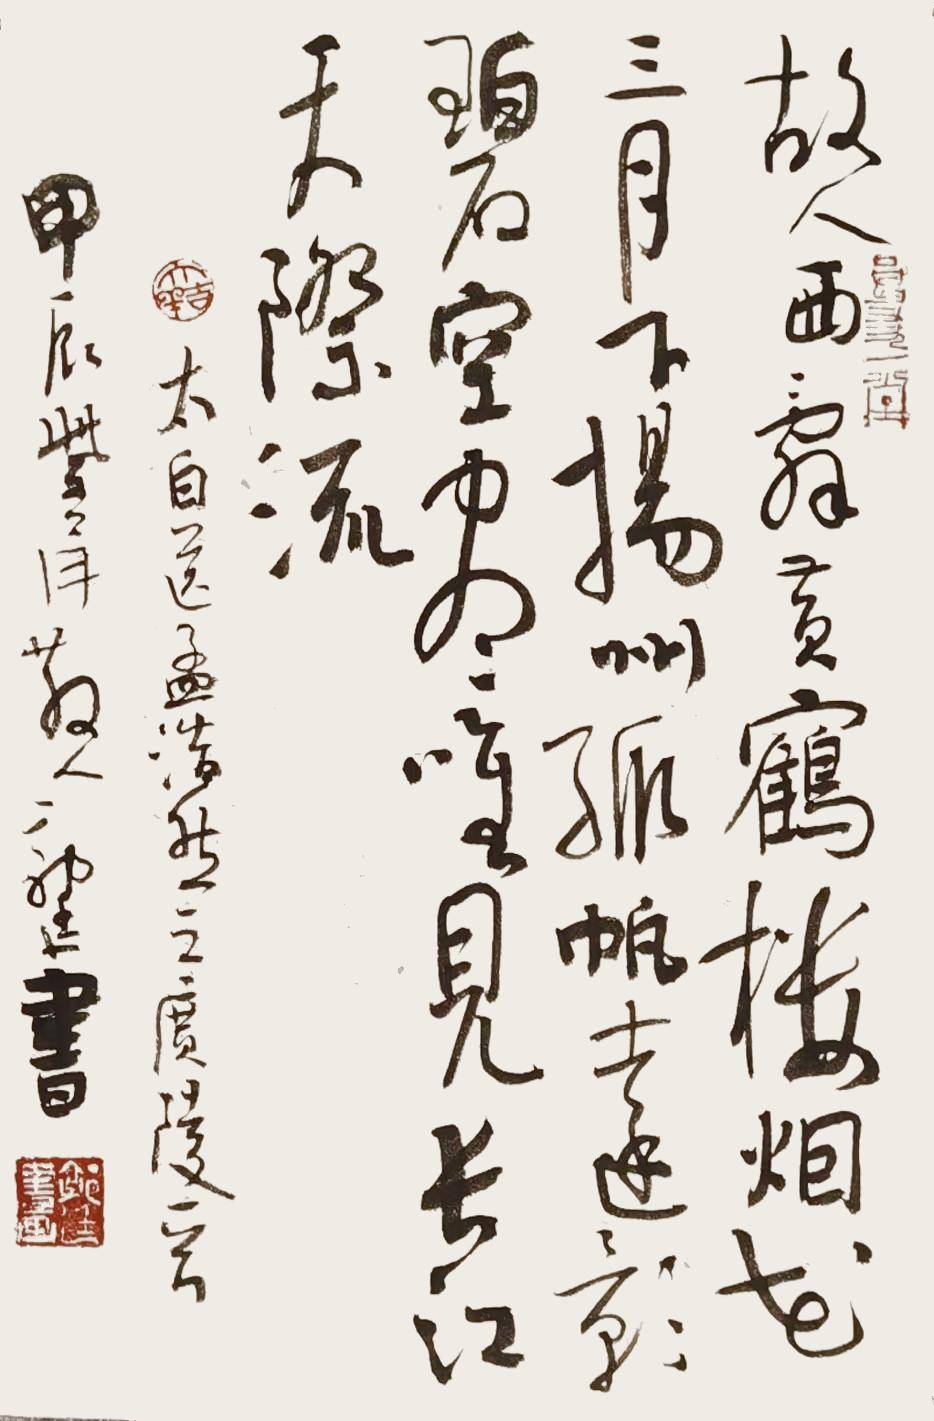 故人西辭黄鶴楼烟花
三月下揚州孤帆遠影
碧空盡唯見長江
天際流
太白送孟浩然之廣陵一首
甲辰散人書